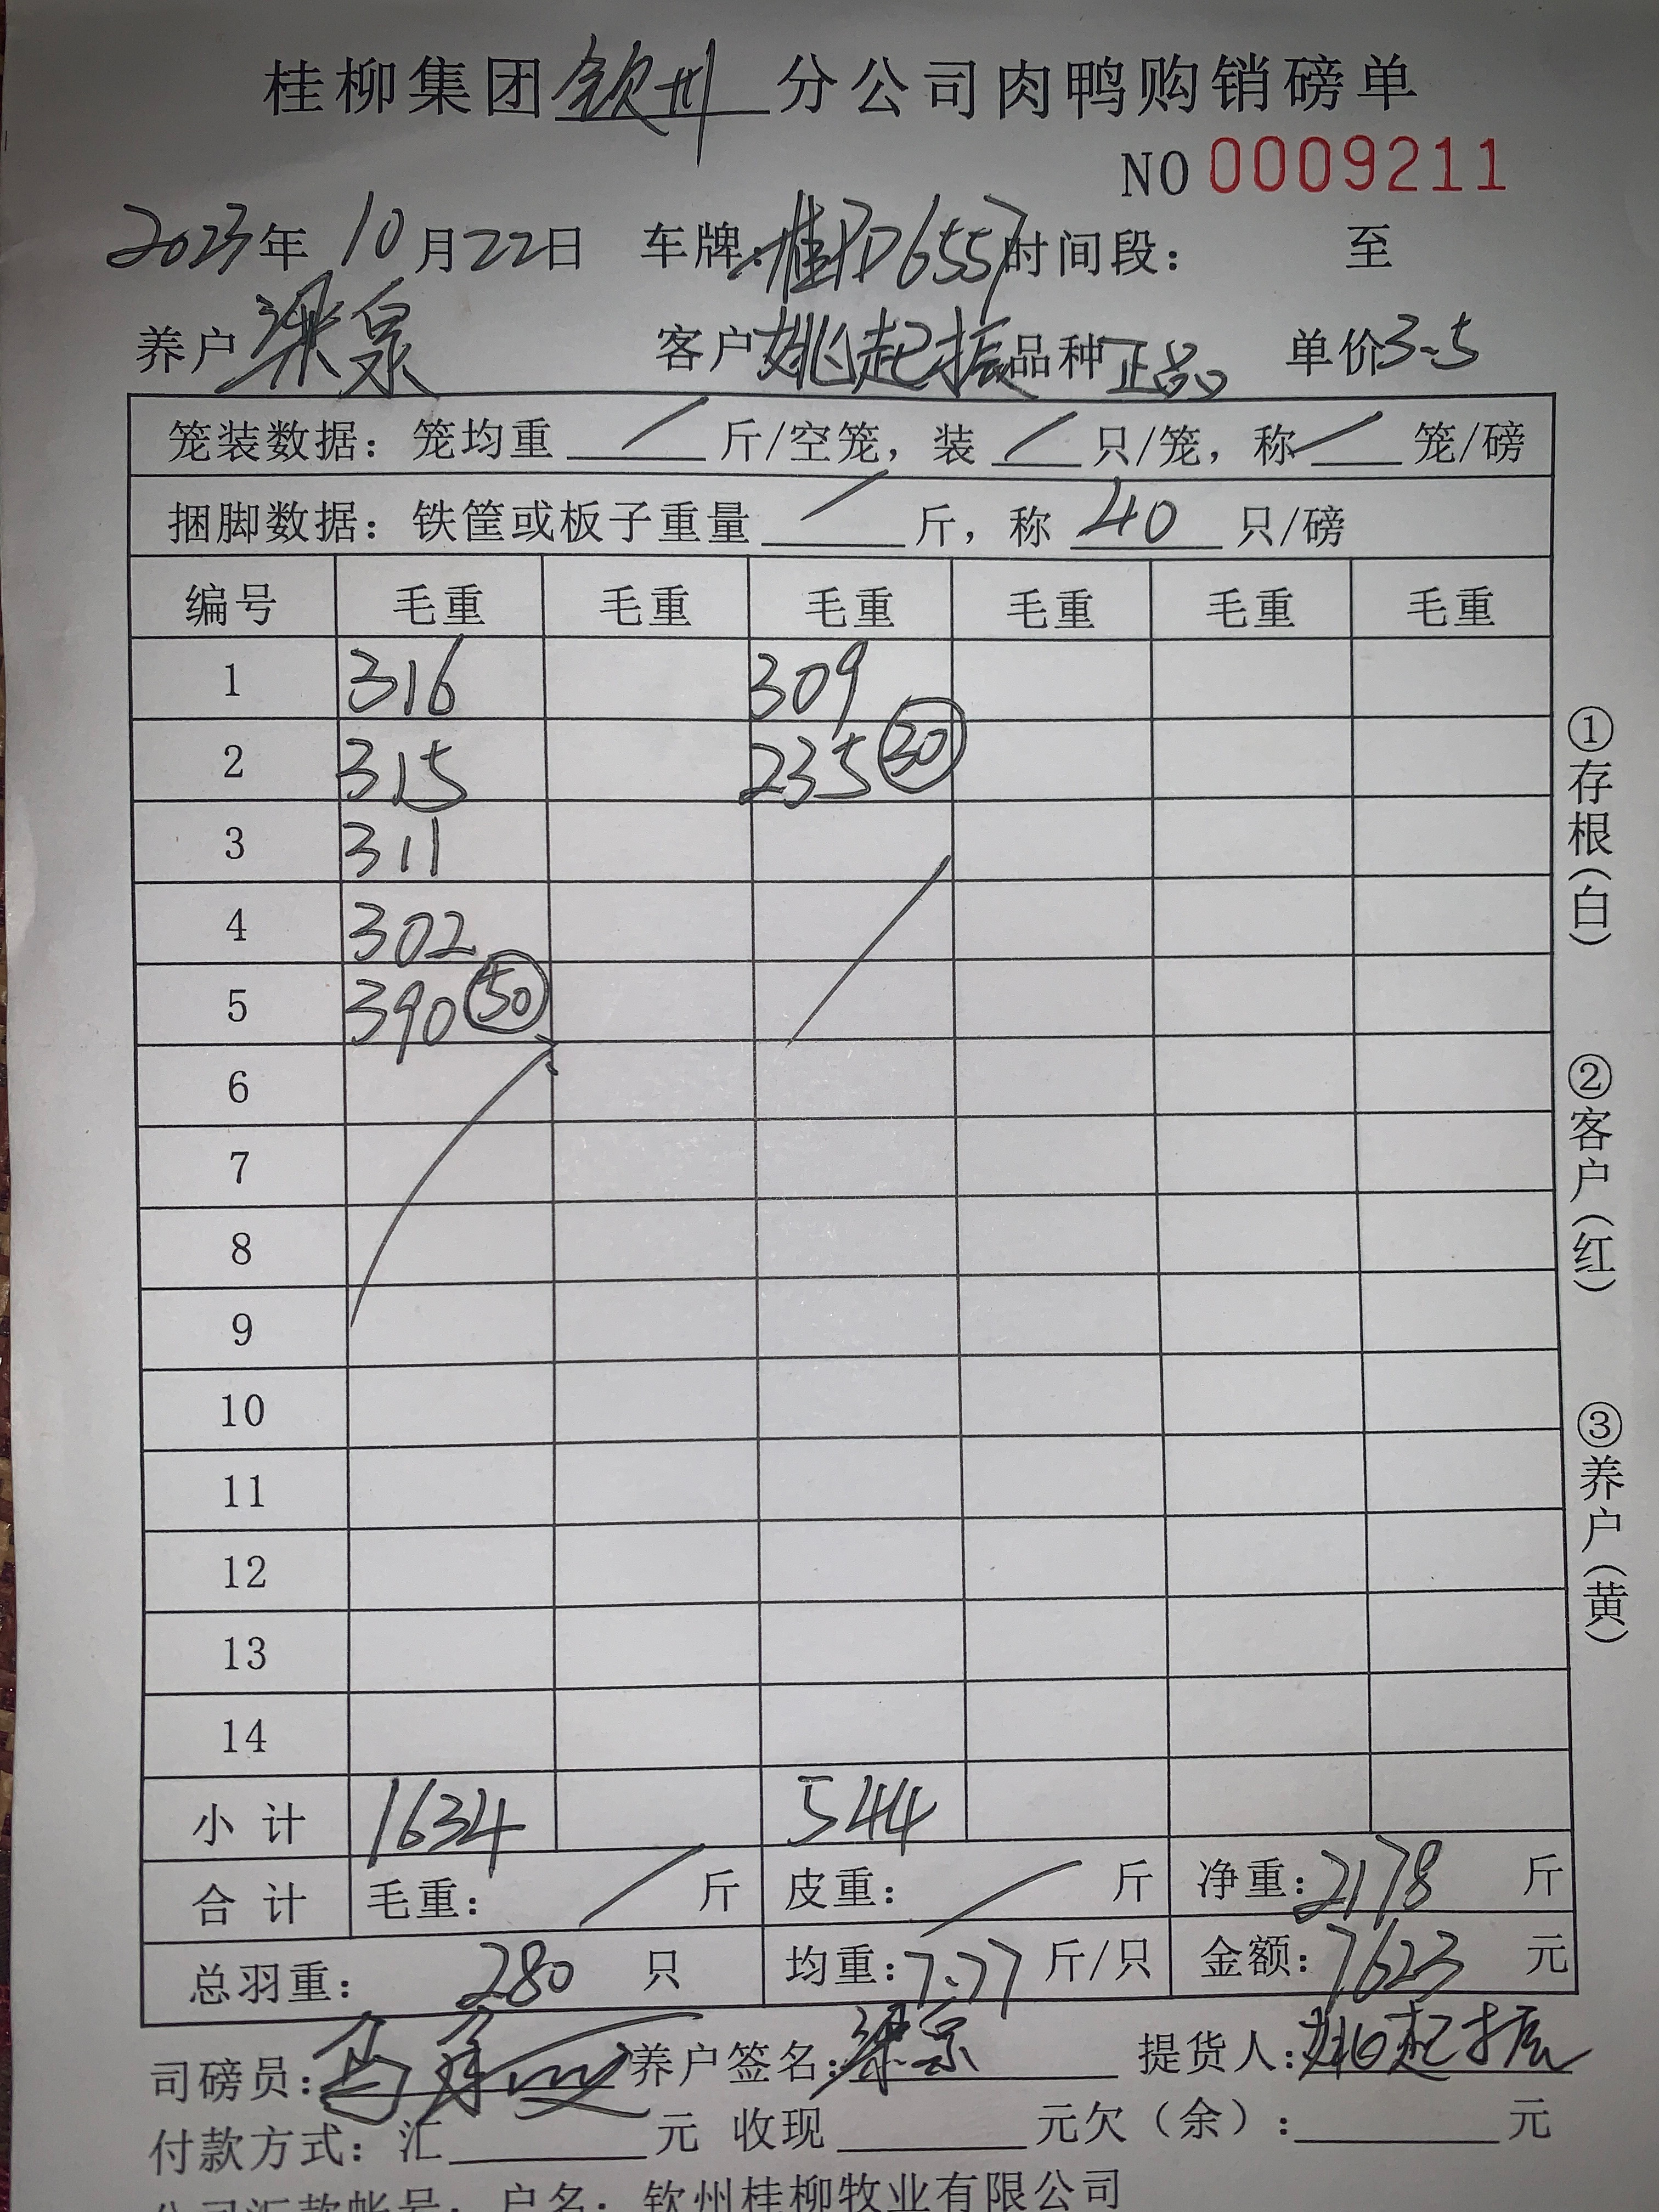 桂柳集团钦州分公司肉鸭购销磅单
NO 0009211
2023年10月22日 车牌:桂PD6557 时间段: 至
养户 梁泉 客户 姚起振 品种 正品 单价 3.5
笼装数据:笼均重 / 斤/空笼,装 / 只/笼,称 / 笼/磅
捆脚数据:铁筐或板子重量 / 斤,称 40 只/磅
编号 毛重 毛重 毛重 毛重 毛重 毛重
1 316 309
2 315 235 30
3 311
4 302
5 390 50
6
7
8
9
10
11
12
13
14
小计 1634 544
合计 毛重: / 斤 皮重: / 斤 净重:2178 斤
总羽重: 280 只 均重:7.77 斤/只 金额:7623 元
司磅员: 养户签名:梁泉 提货人:姚起振
付款方式:汇 元 收现 元欠(余): 元
公司汇款帐号:户名:钦州桂柳牧业有限公司
①存根(白)
②客户(红)
③养户(黄)